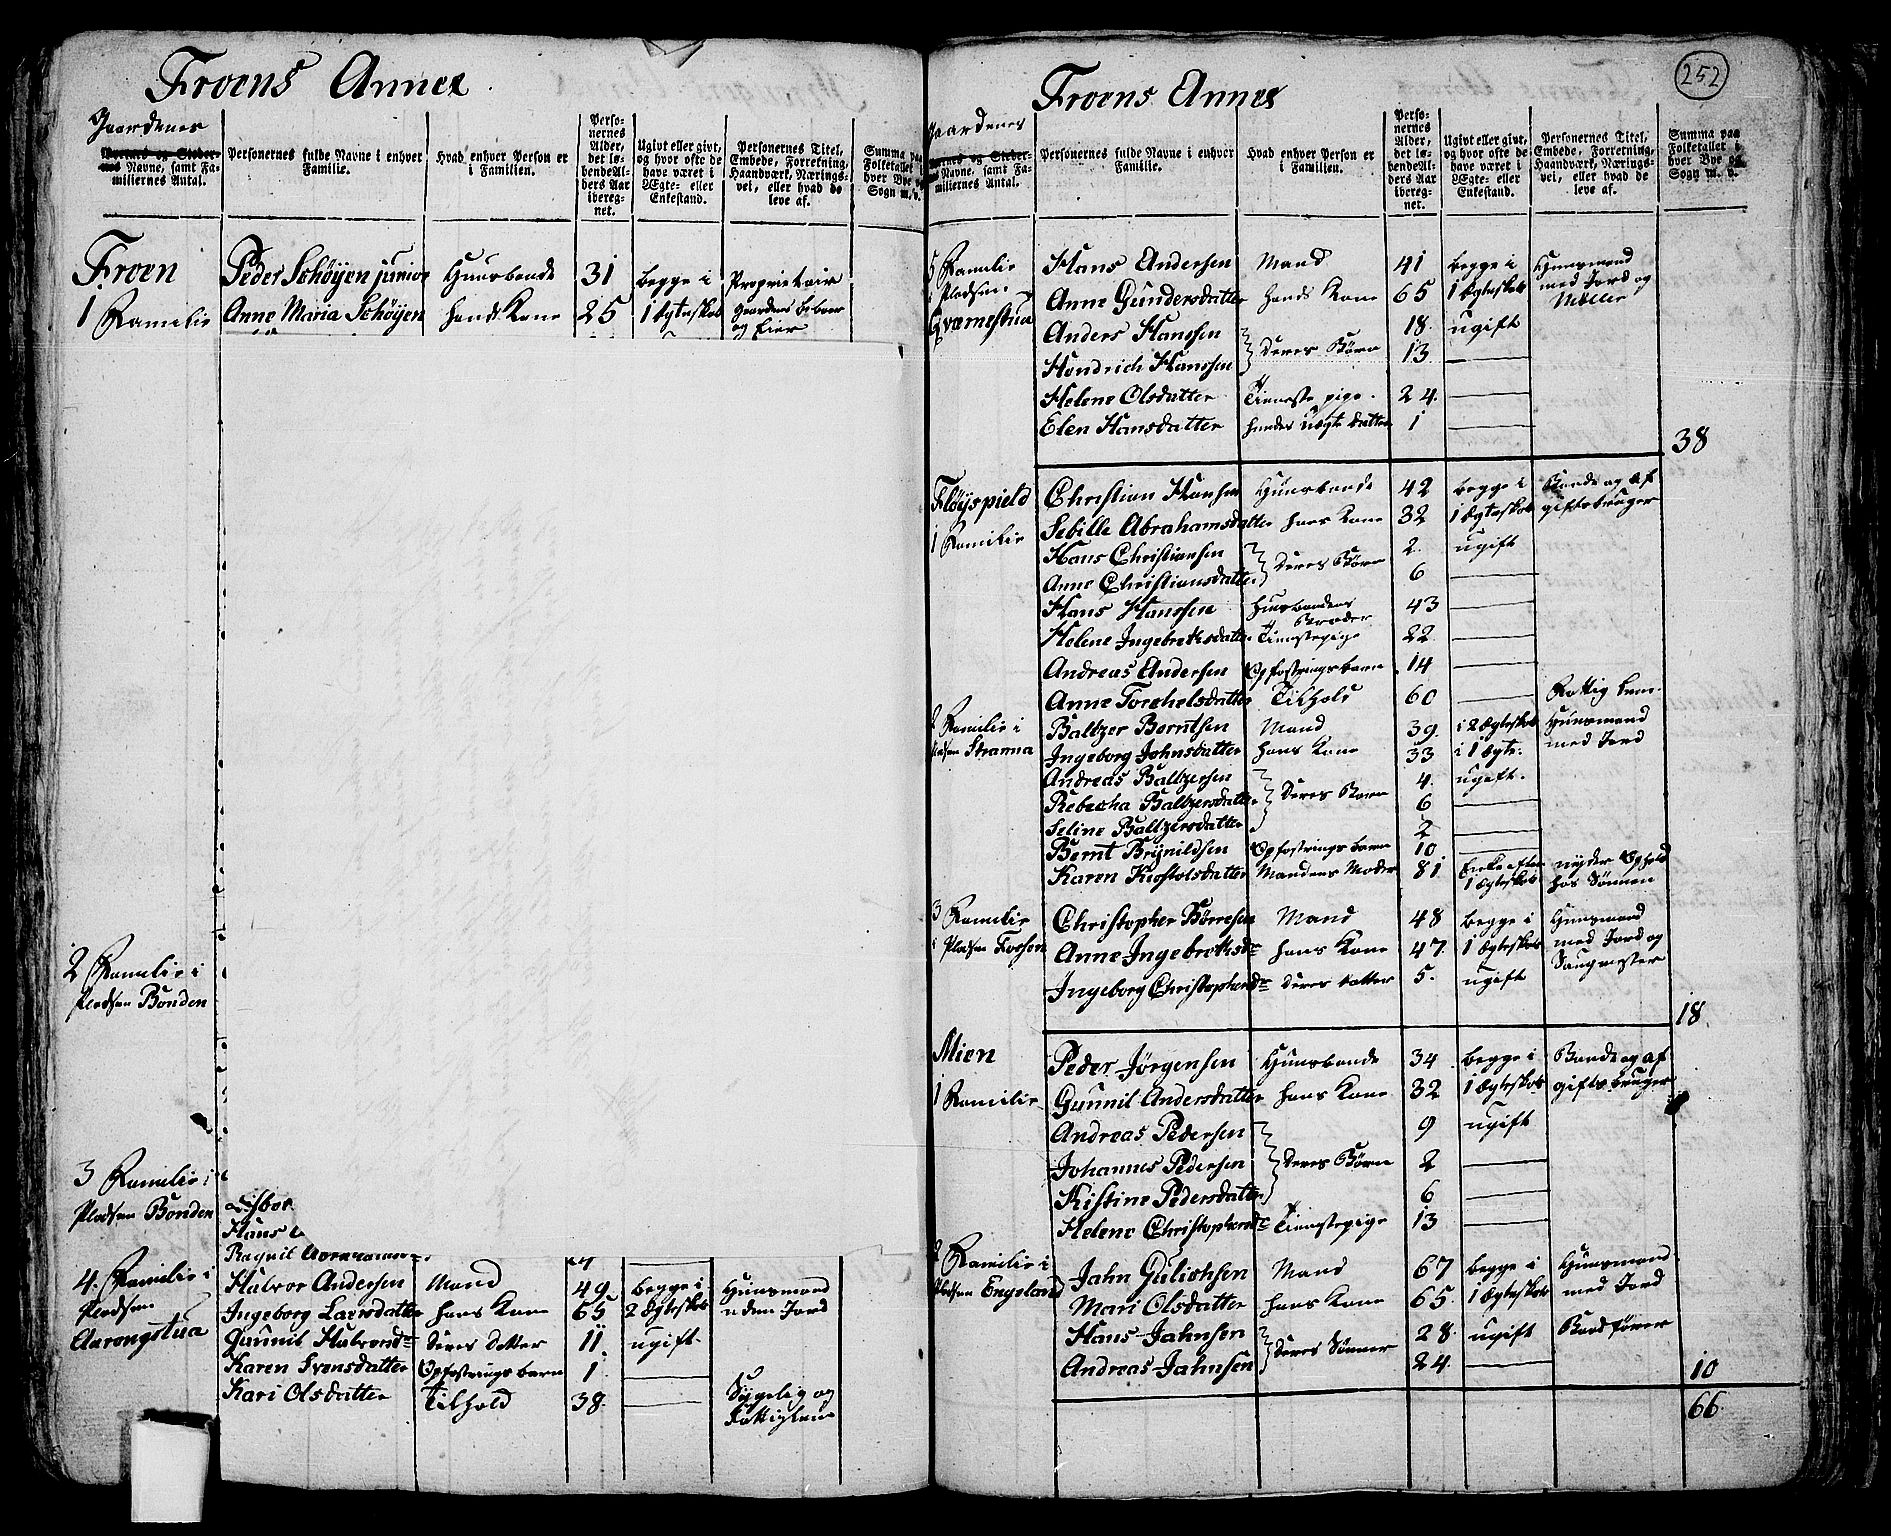 Froens Annex
Gaardenes
Personernes fulde Navne i enhver Familie.
Hvad enhver Person er i Familien.
Personernes Alder, det løbende Alders Aar iberegnet.
Ugivt eller givt, og hvor ofte de have været i Ægte- eller Enkestand.
Personernes Titel, Embede, Forretning, Haandværk, Næringsvei, eller hvad de leve af.
Summa paa Folketallet i hver Bye og Sogn m. v.
Froen Peder Schøyen junior Huusbonde 31 begge i Proprietair
1 Familie Anne Maria Schøyen hands Kone 25 1 Ægteskab Gaardens beboer
og Eier
2 Familie i
Pladsen Bonden
3 Familie i
Pladsen Bonden
Hans
Ragnil
4. Familie i Halvor Andersen Mand 49 begge i Huusmand
Pladsen Ingeborg Larsdatter hans Kone 65 2 Ægteskab uden Jord
Aarongstua Gunnil Halvorsd= Deres Datter 11 ugift
Karen Svensdatter Opfostrings barn 1.
Kari Olsdatter Tilhold 38. Sygelig og
Fattiglem
252
Froens Annex
Gaardenes
Personernes fulde Navne i enhver Familie.
Hvad enhver Person er i Familien.
Personernes Alder, det løbende Alders Aar iberegnet.
Ugivt eller givt, og hvor ofte de have været i Ægte- eller Enkestand.
Personernes Titel, Embede, Forretning, Haandværk, Næringsvei, eller hvad de leve af.
Summa paa Folketallet i hver Bye og Sogn m. v.
5 Familie Hans Andersen Mand 41 begge i Huusmand
i Pladsen Anne Gundersdatter hands Kone 65 1 Ægteskab med Jord og
Qværnestua Møller
Anders Hanssen 18. ugift
Hendrich Hanssen Deres Børn 13
Helene Olsdatter Tieneste pige 24.
Elen Hansdatter hendes uægte datter 1
38
Fløyspield Christian Hansen Huusbonde 42 begge i Bonde og af
1 Familie Sebille Abrahamsdatter hans Kone 32 1 Ægteskab giftsbruger
Hans Christiansen 2. ugift
Anne Christiansdatter Deres Børn 6
Hans Hanssen Huusbondens Broder 43
Helene Ingebretsdatter Tienestepige 22
Andreas Andersen Opfostringsbarn 14
Anne Torchelsdatter Tilhold 60 Fattig lem
2 Familie i Baltzer Berntsen Mand 39. i 2 Ægteskab Huusmand
Pladsen Stranna Ingeborg Johnsdatter hans Kone 33 i 1 Ægte. med Jord
Andreas Baltzersen 4. ugift.
Rebecha Baltzersdatter Deres Børn 6
Seline Baltzersdatter 2
Bernt Brynildsen Opfostrings barn 10
Karen Kiostolsdatter Mandens Moder 81 Enke efter nyder Ophold
1 Ægteskab hos Sønnen
3 Familie Christopher Børresen Mand 48 begge i Huusmand
i Pladsen Fossen Anne Ingebretsd= hans Kone 47. 1 Ægteskab med Jord og
Saugmester
Ingeborg Christophersd= Deres datter 5. ugift
18.
Mien Peder Jørgensen Huusbonde 34 begge i Bonde og af
1 Familie Gunnil Andersdatter hans Kone 32 1 Ægteskab gifts bruger
Andreas Pedersen 9 ugift
Johannes Pedersen Deres Børn 2
Kistine Pedersdatter 6
Helene Christophersd= Tienestepige 13
2 Familie i Jahn Gulichsen Mand 67 begge i Huusmand
Pladsen Engeland Mari Olsdatter hans Kone 65. 1 Ægteskab med Jord
Hans Jahnsen 28. ugift Baadfører
Andreas Jahnsen Deres Sønner 24.
10
66.